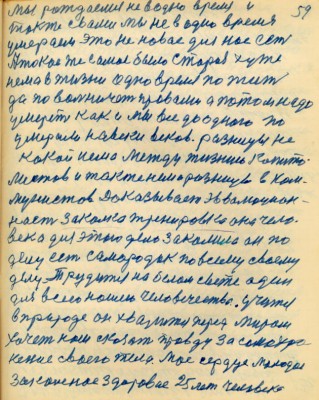 мы рождаемся не в одно время и 59
также с вами мы не в одно время
умераем это не новое для нас ест
А токое же самое было старое хуже
нема в жизни одно время пожит
да поволничет провами а потом надо
умерет как и мы все до одного по
умерали навеки веков. разницы не
какой нема между жизнию капита-
листов и также нема разницы в ком-
мунистов Доказывает эволюцион-
ност Закалка тренировка она чело-
века для этого дела Закалила он по
делу ест самородок по всему своему
делу. Трудится на белом свете один
для всего нашего человечества. учится
в природе он хвалится перед миром
хочет нам сказат правду За сохра-
нение своего тела. Мое сердце молодое
Закаленное здоровое 25 лет человека